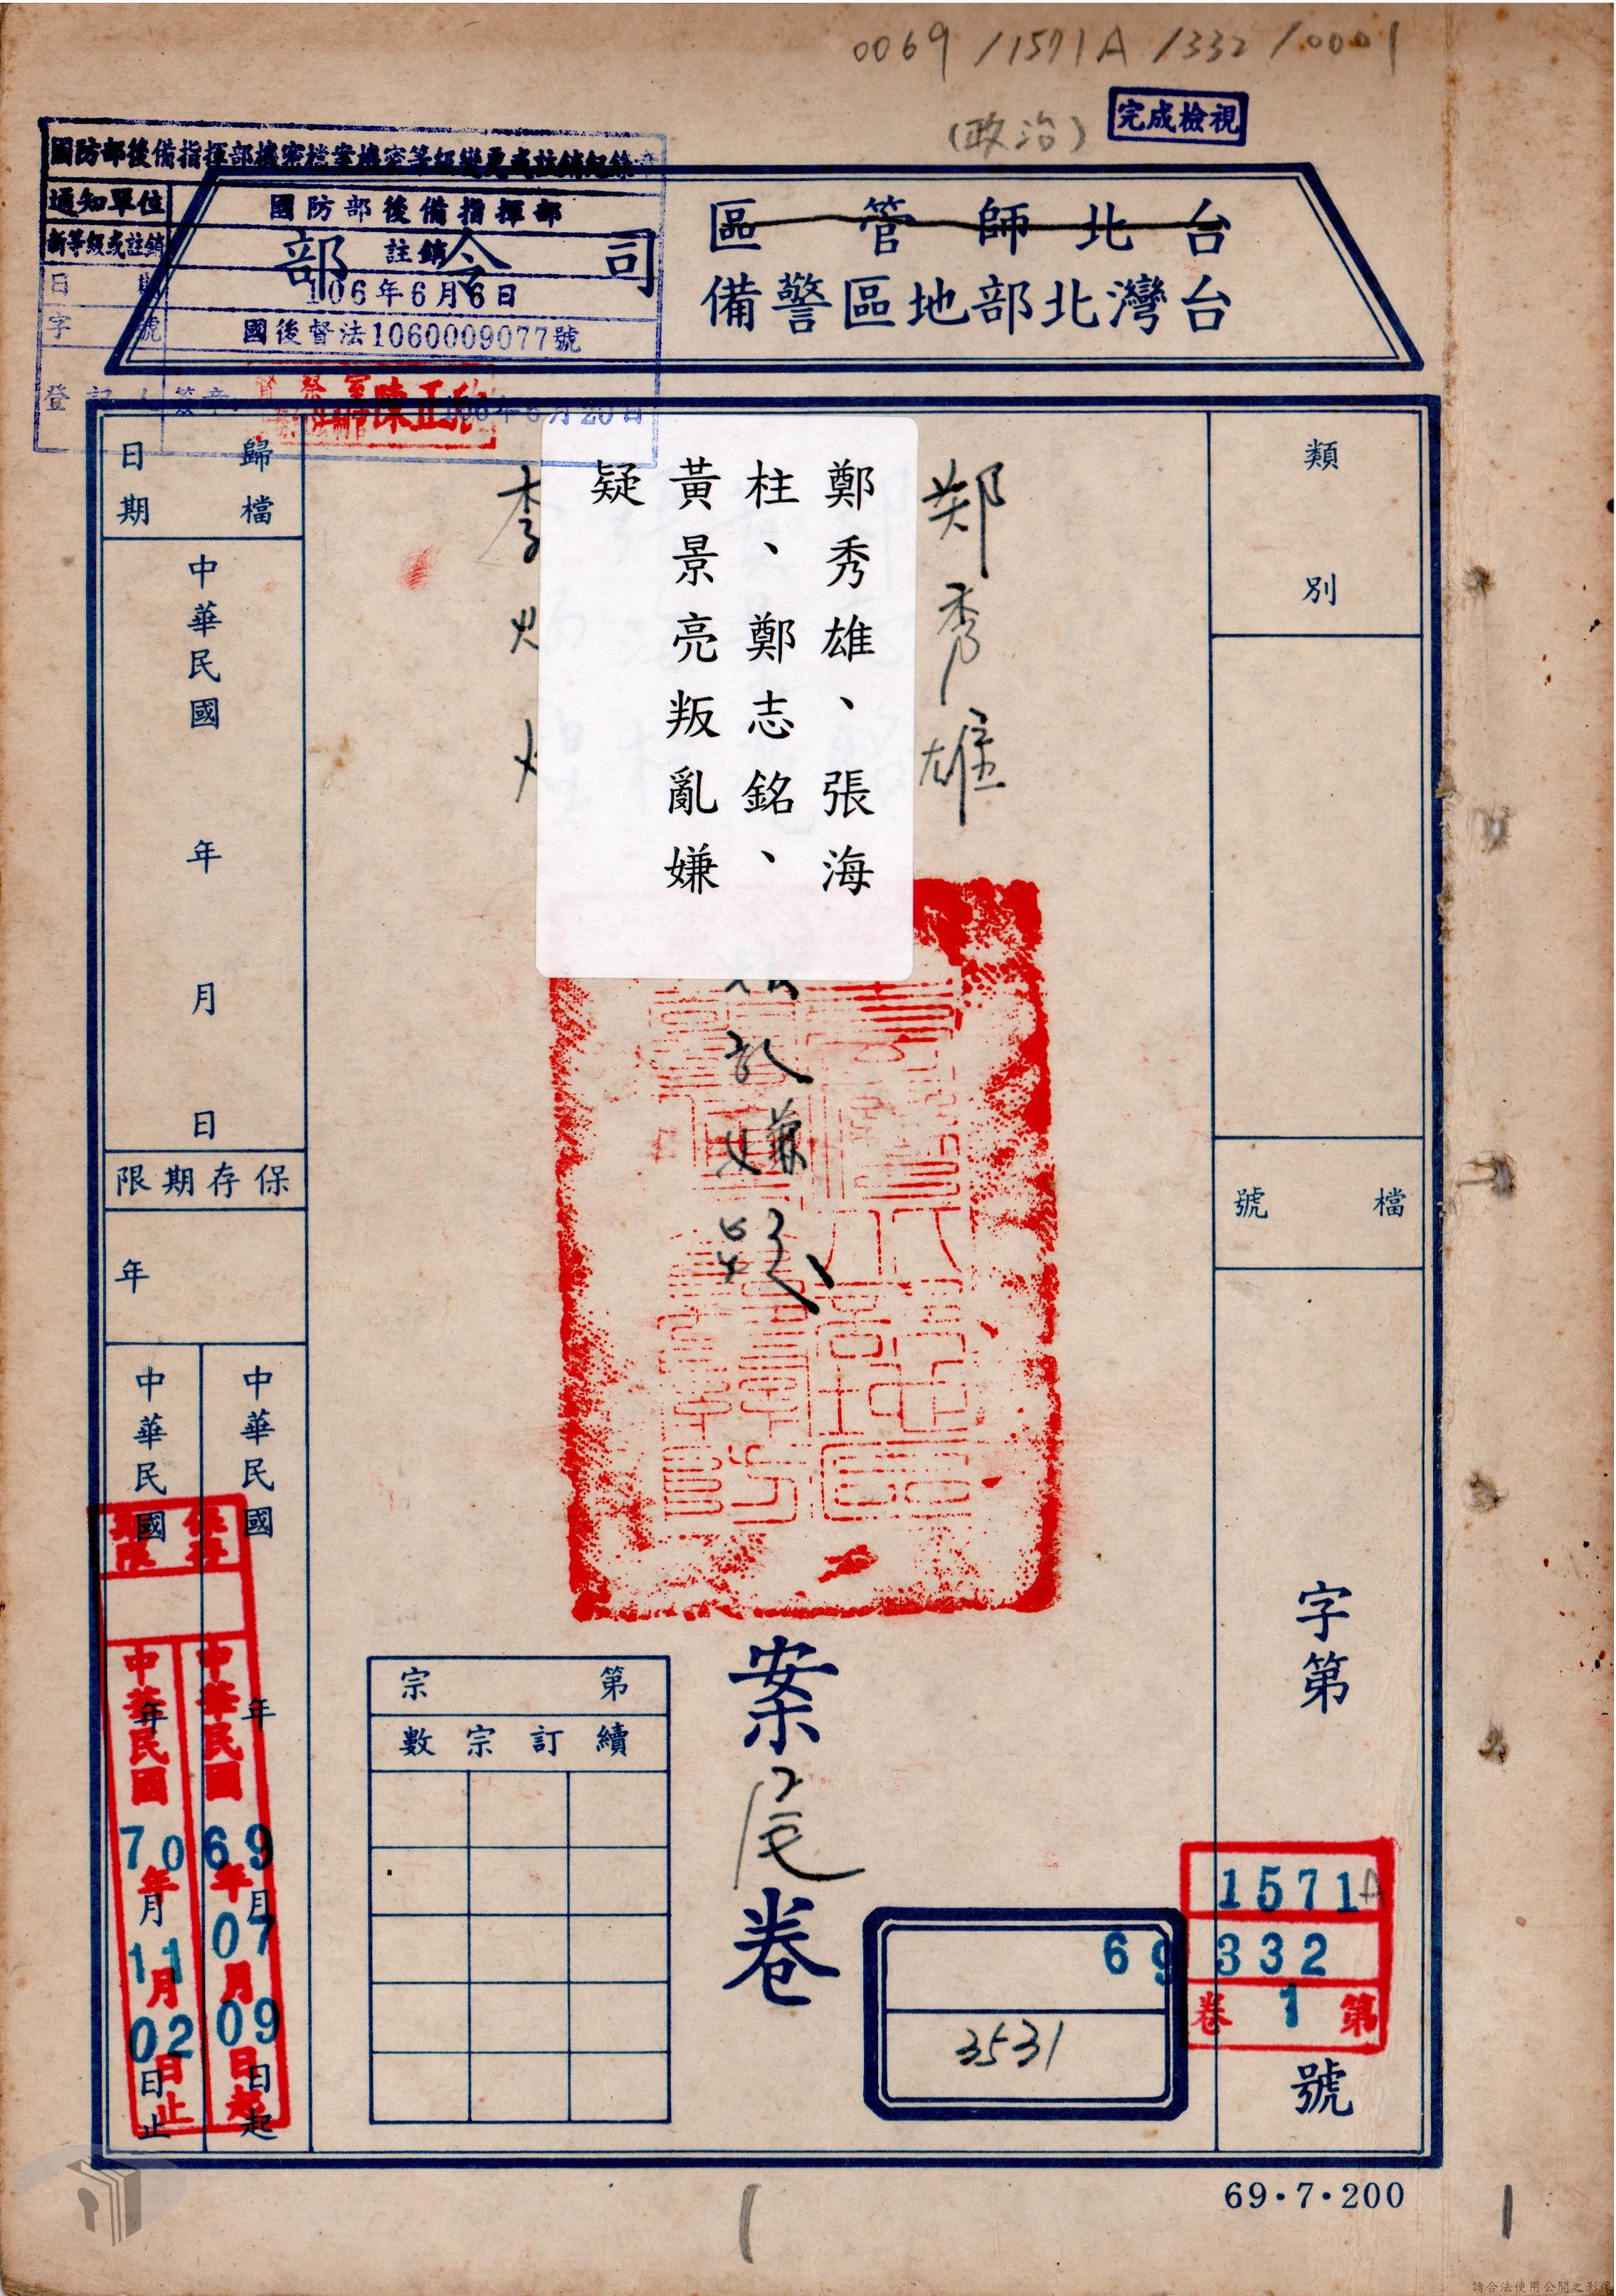 0069/1571A/332/0001
(政治)
完成檢視
國防部後備指揮部機密檔案機密等級變更或註銷紀錄
通知單位 國防部後備指揮部
新等級或註銷 註銷
日期 106年6月6日
字號 國後督法1060009077號
登記人簽章
陳正
106年6月20日
台北師管區
台灣北部地區警備
司令部
類別
檔號
字第
號
鄭秀雄
鄭秀雄、張海
柱、鄭志銘、
黃景亮叛亂嫌
疑
李
叛亂嫌疑
案尾卷
歸檔日期
中華民國 年 月 日
保存期限
年
中華民國 年 月 日起
中華民國 年 月 日止
保存期限
中華民國69年07月09日起
中華民國70年11月02日止
第宗
續訂宗數
1571A
69 332
第1卷
3531
69·7·200
請合法使用公開之影像